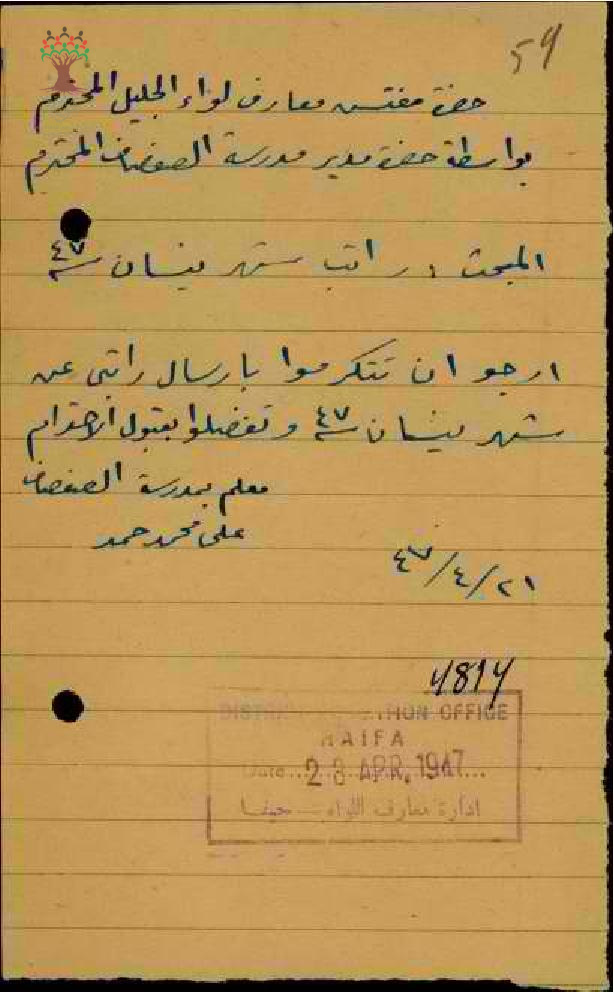 54
حضرة مفتش معارف لواء الجليل المحترم
بواسطة حضرة مدير مدرسة الصفصاف المحترم
المبحث : راتب شهر نيسان سنة ٤٧
ارجو ان تتكرموا بارسال راتبي عن
شهر نيسان سنة ٤٧ وتفضلوا بقبول الاحترام
معلم بمدرسة الصفصاف
علي محمد حمد
٢١/٤/٤٧
4814
DISTRICT EDUCATION OFFICE
HAIFA
Date... 23 APR. 1947...
ادارة معارف اللواء — حيفا